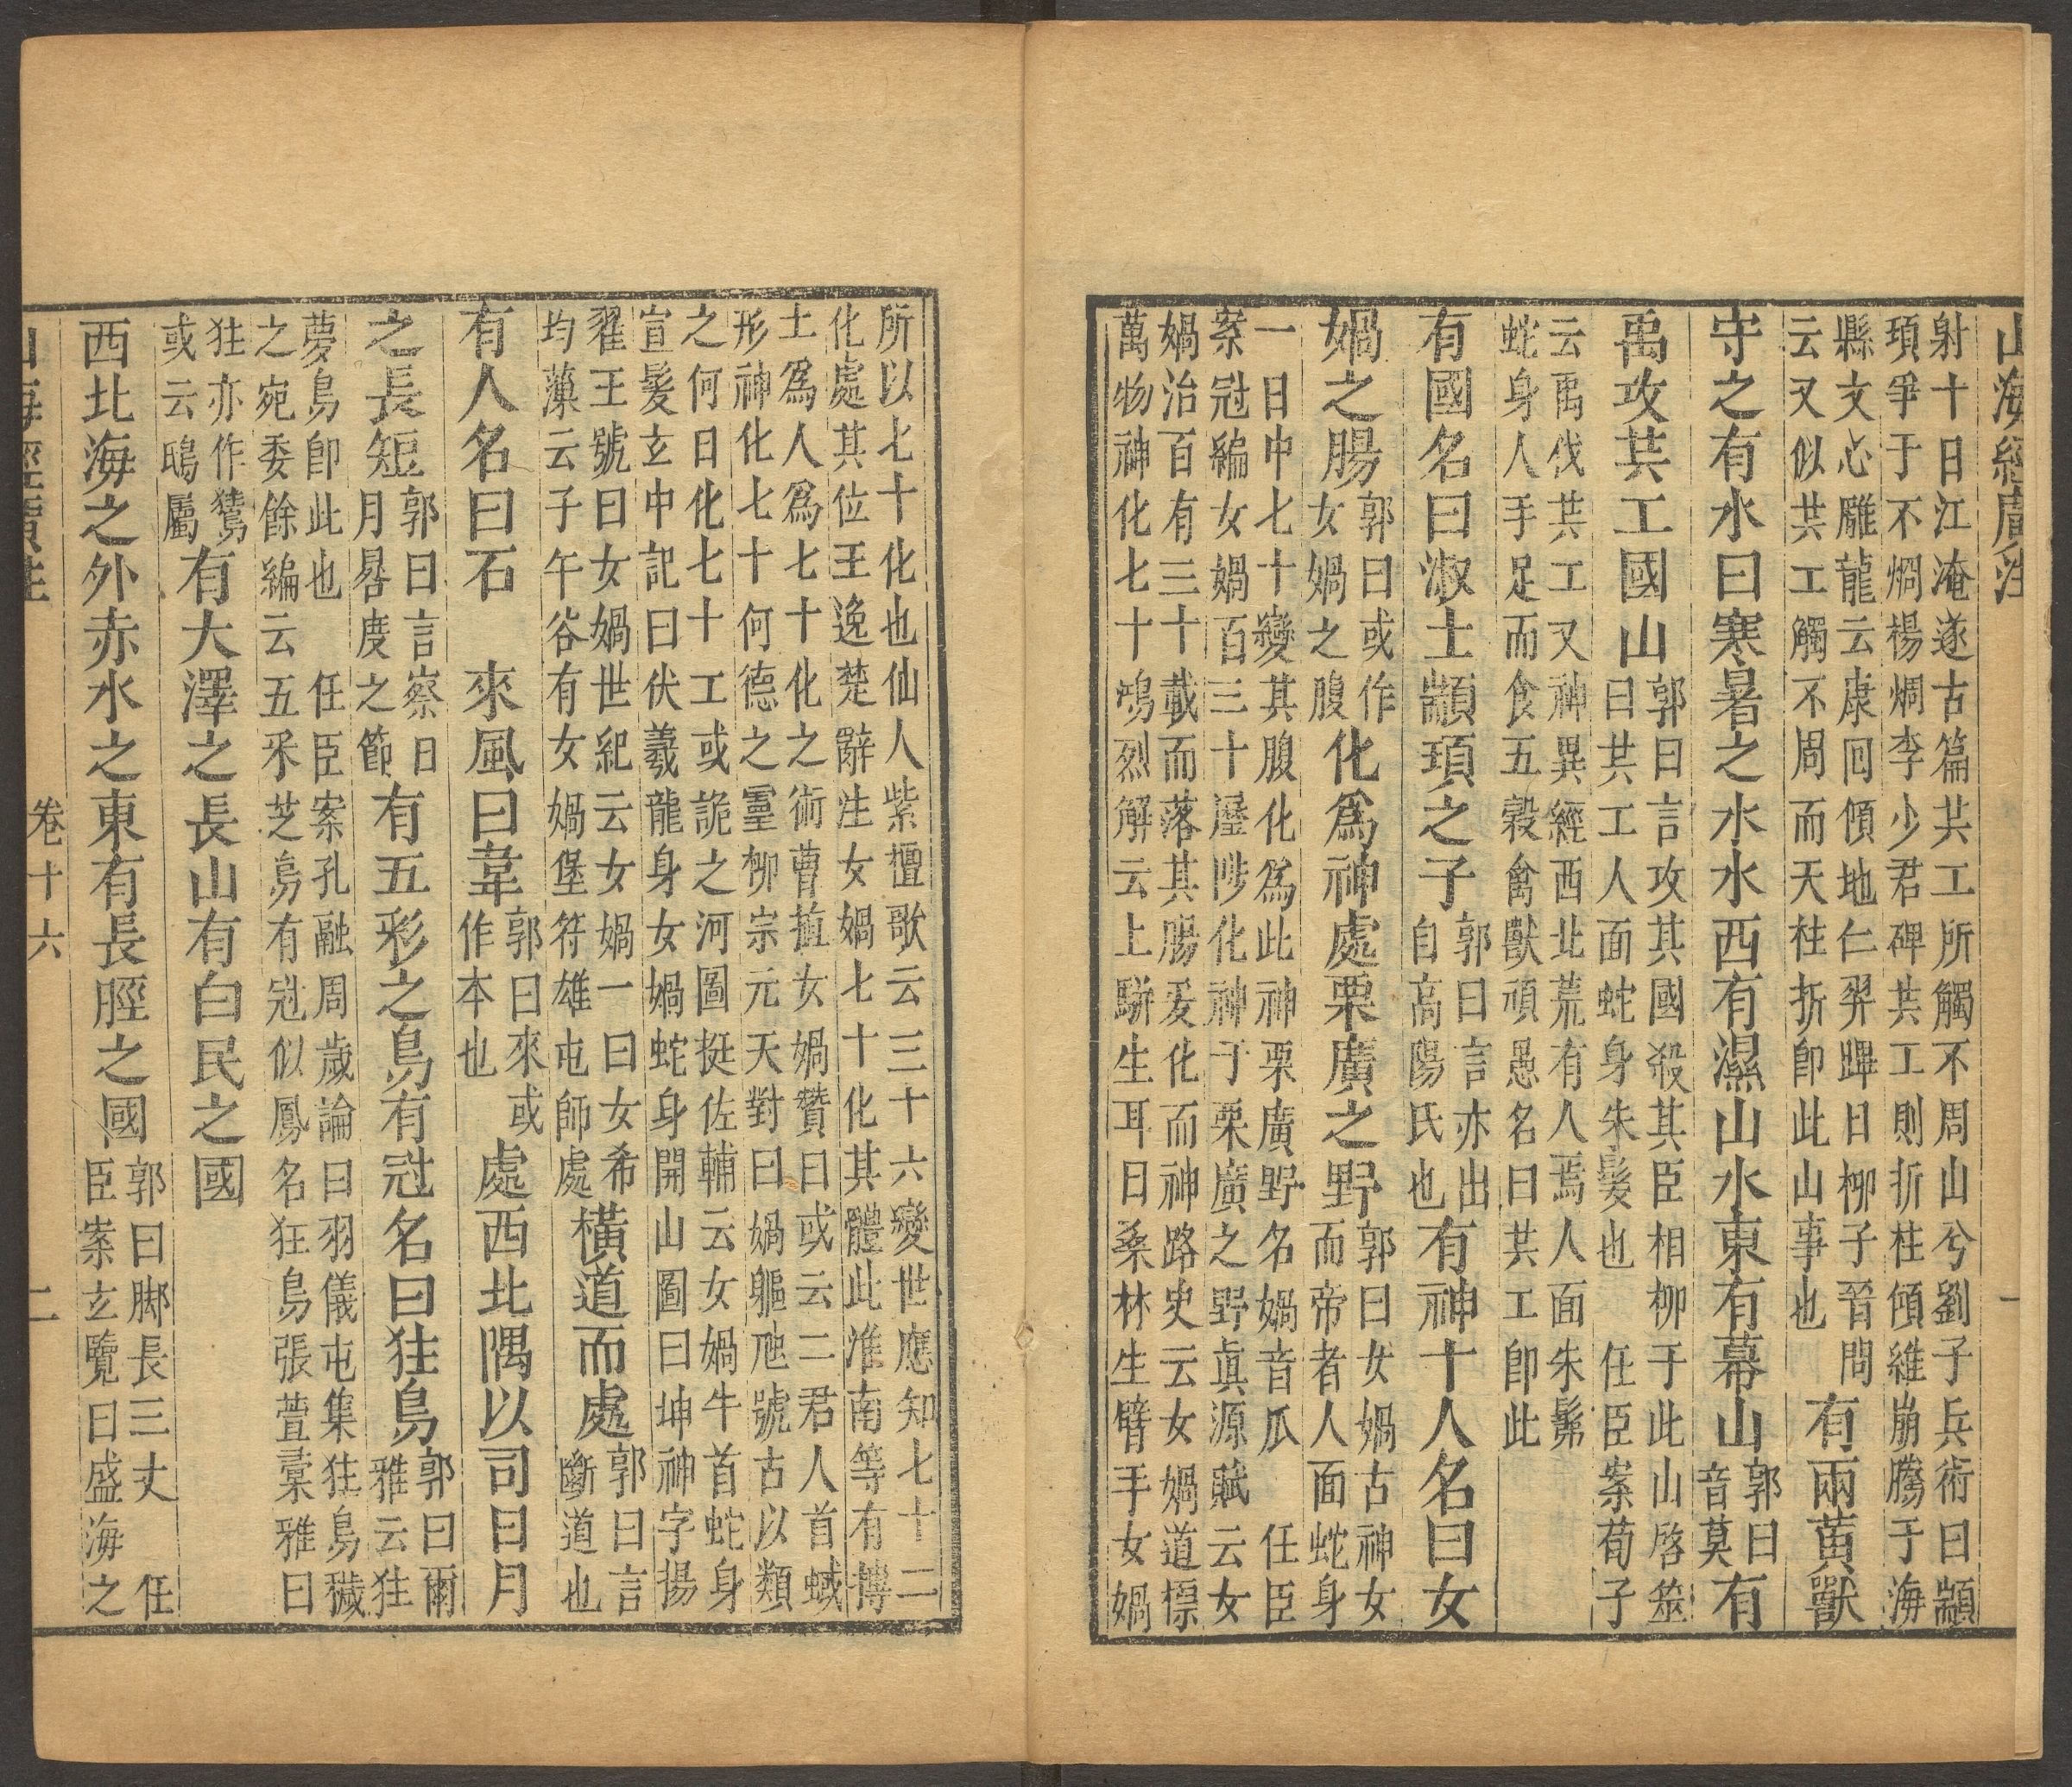 山海經廣注
一
射十日江淹遂古篇共工所觸不周山兮劉子兵術曰顓
頊爭于不烱楊烱李少君碑共工則折柱傾維崩騰于海
縣文心雕龍云康回傾地仁羿㢸日柳子晉問
云又似共工觸不周而天柱折卽此山事也
有兩黃獸
守之有水曰寒暑之水水西有濕山水東有幕山
郭曰
音莫
有
禹攻共工國山
郭曰言攻其國殺其臣相柳于此山啓筮
曰共工人面蛇身朱髮也 任臣案荀子
云禹伐共工又神異經西北荒有人焉人面朱髴
蛇身人手足而食五穀禽獸頑愚名曰共工卽此
有國名曰淑士顓頊之子
郭曰言亦出
自高陽氏也
有神十人名曰女
媧之腸
郭曰或作
女媧之腹
化爲神處栗廣之野
郭曰女媧古神女
而帝者人面蛇身
一日中七十變其腹化爲此神栗廣野名媧音瓜 任臣
案冠編女媧百三十㙻陟化神于栗廣之野眞源賦云女
媧治百有三十載而落其腸爰化而神路史云女媧道標
萬物神化七十鴻烈解云上駢生耳目桑林生臂手女媧
所以七十化也仙人紫檀歌云三十六變世應知七十二
化處其位王逸楚辭注女媧七十化其體此淮南等有摶
土爲人爲七十化之術曹植女媧贊曰或云二君人首蜮
形神化七十何德之靈柳宗元天對曰媧軀虺號古以類
之何日化七十工或詭之河圖挺佐輔云女媧牛首蛇身
宣髮玄中記曰伏羲龍身女媧蛇身開山圖曰坤神字揚
翟王號曰女媧世紀云女媧一曰女希
均藻云子午谷有女媧堡符雄屯師處
橫道而處
郭曰言
斷道也
有人名曰石 來風曰韋
郭曰來或
作本也
處西北隅以司日月
之長短
郭曰言察日
月晷度之節
有五彩之鳥有冠名曰狂鳥
郭曰爾
雅云狂
夢鳥卽此也 任臣案孔融周歲論曰羽儀屯集狂鳥穢
之宛委餘編云五采芝鳥有冠似鳳名狂鳥張萱彙雅曰
狂亦作𪁔
或云鴟屬
有大澤之長山有白民之國
西北海之外赤水之東有長脛之國
郭曰脚長三丈 任
臣案玄覽曰盛海之
山海經廣注
卷十六
二